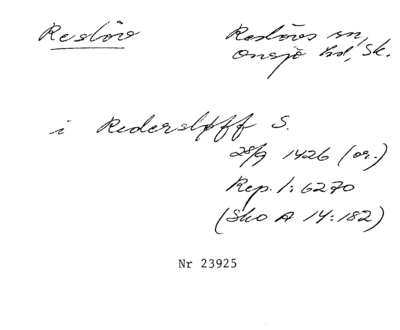 Reslöv Reslövs sn,
Onsjö hd, Sk.
i Redersløff S.
28/9 1426 (or.)
Rep. 1: 6270
(Sko A 14:182)
Nr 23925